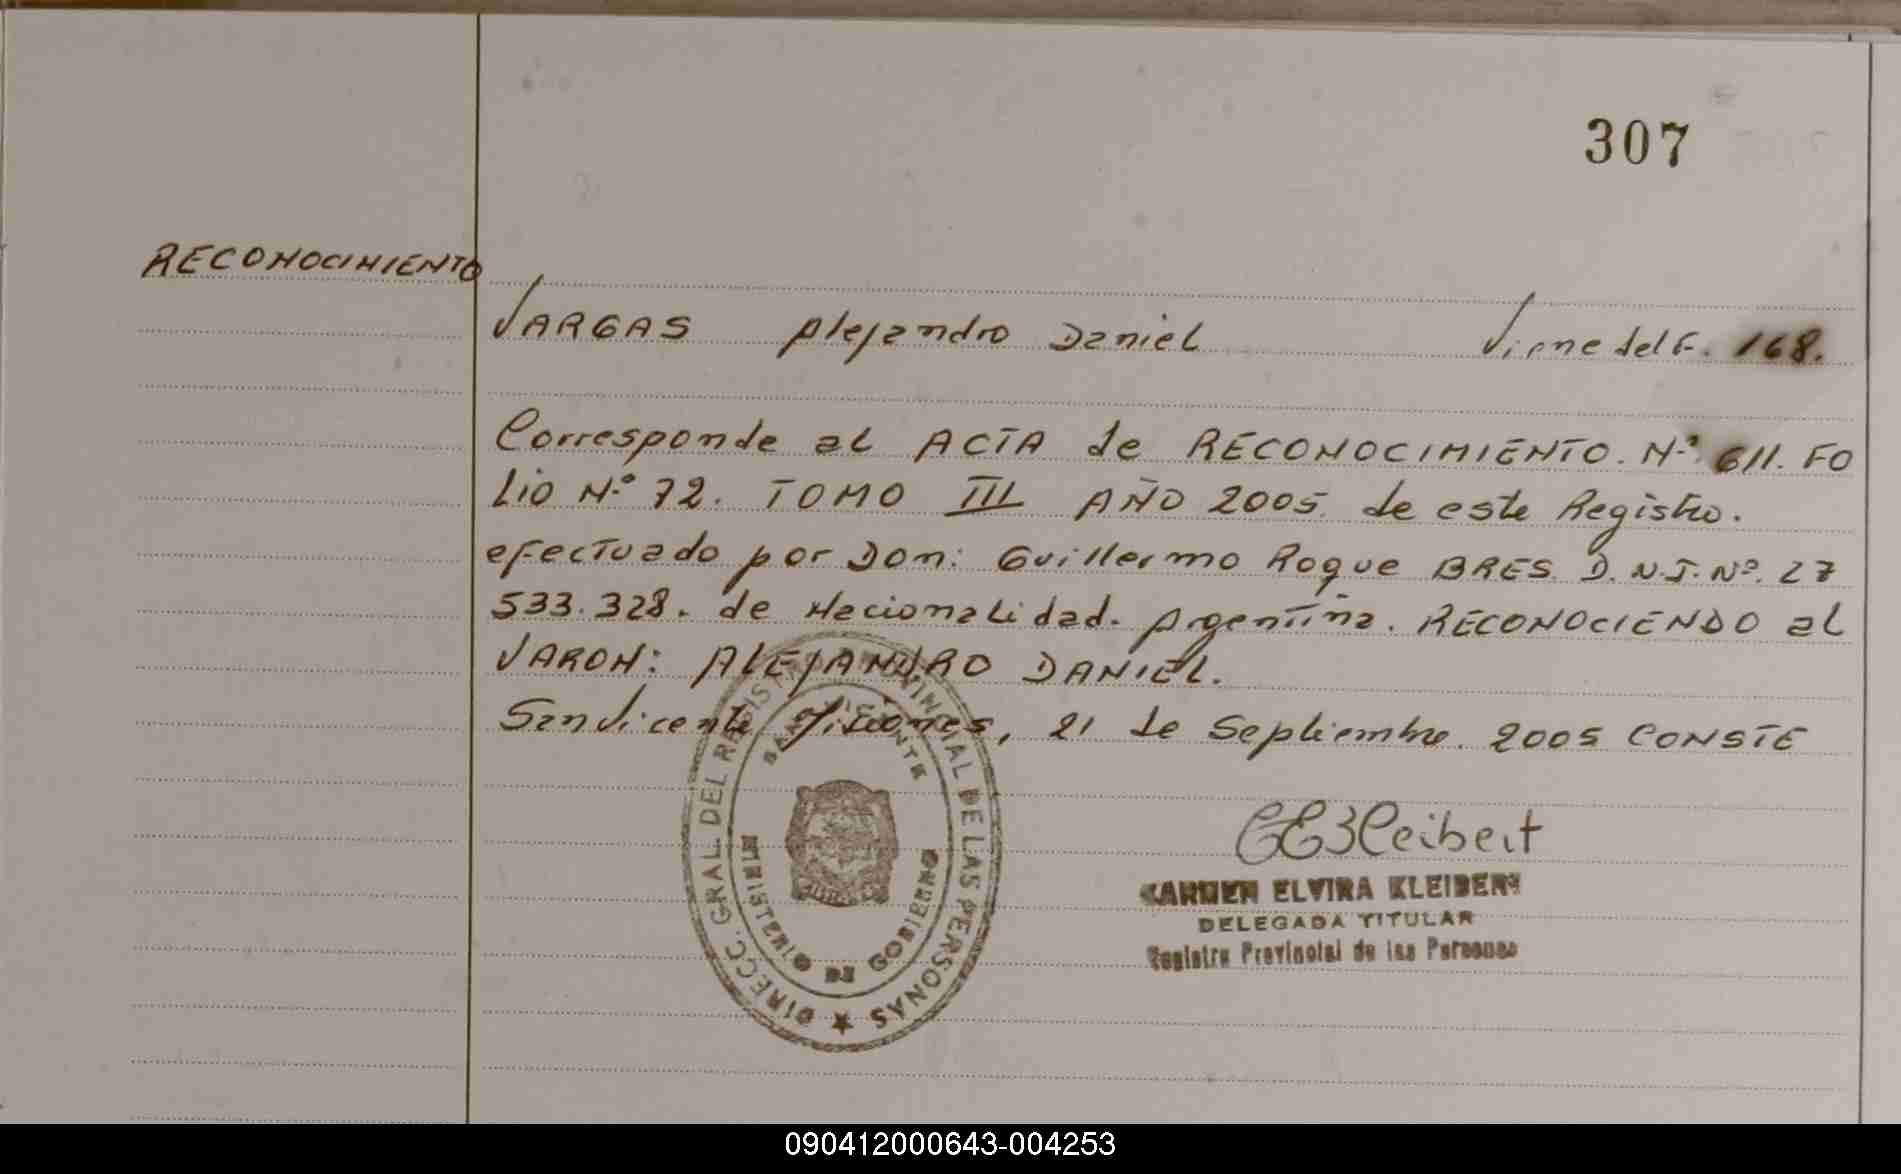 307
RECONOCIMIENTO
VARGAS Alejandro Daniel Viene del F. 168.
Corresponde al ACTA de RECONOCIMIENTO. Nº 611. FO
Lio Nº 72. TOMO III AÑO 2005 de este Registro.
efectuado por Don: Guillermo Roque BRES. D.N.I. Nº. 27
533.328. de Nacionalidad. Argentina. RECONOCIENDO al
VARON: ALEJANDRO DANIEL.
San Vicente Misiones, 21 de Septiembre. 2005 CONSTE
DIRECC. GRAL. DEL REGISTRO PROVINCIAL DE LAS PERSONAS
SAN VICENTE
MINISTERIO DE GOBIERNO
CEKleibert
CARMEN ELVIRA KLEIBERT
DELEGADA TITULAR
Registro Provincial de las Personas
090412000643-004253